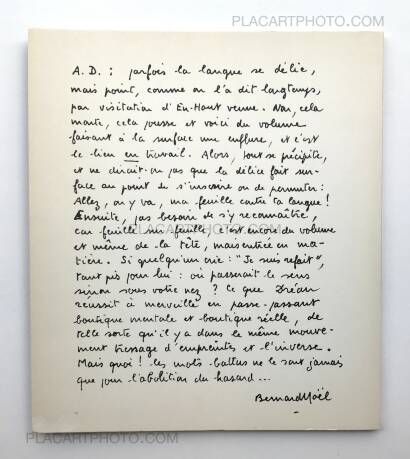 PLACARTPHOTO.COM
A.D. : parfois la langue se délie,
mais point, comme on l'a dit longtemps,
par visitation d'En-Haut venue. Non, cela
monte, cela pousse et voici du volume
faisant à la surface une enflure, et c'est
le lieu en travail. Alors, tout se précipite,
et ne dirait-on pas que la délice fait sur-
face au point de s'inscrire ou de permuter :
Allez, on y va, ma feuille contre ta langue !
Ensuite, pas besoin de s'y reconnaître,
car feuille sur feuille, c'est encore du volume
et même de la tête, mais entrée en ma-
tière. Si quelqu'un crie : "Je suis refait",
tant pis pour lui : où passerait le sens
sinon sous votre nez ? Ce que Dréan
réussit à merveille en passe-passant
boutique mentale et boutique réelle, de
telle sorte qu'il y a dans le même mouve-
ment tressage d'empreintes et l'inverse.
Mais quoi ! les mots battus ne le sont jamais
que pour l'abolition du hasard ...
Bernard Noël
PLACARTPHOTO.COM
PLACARTPHOTO.COM